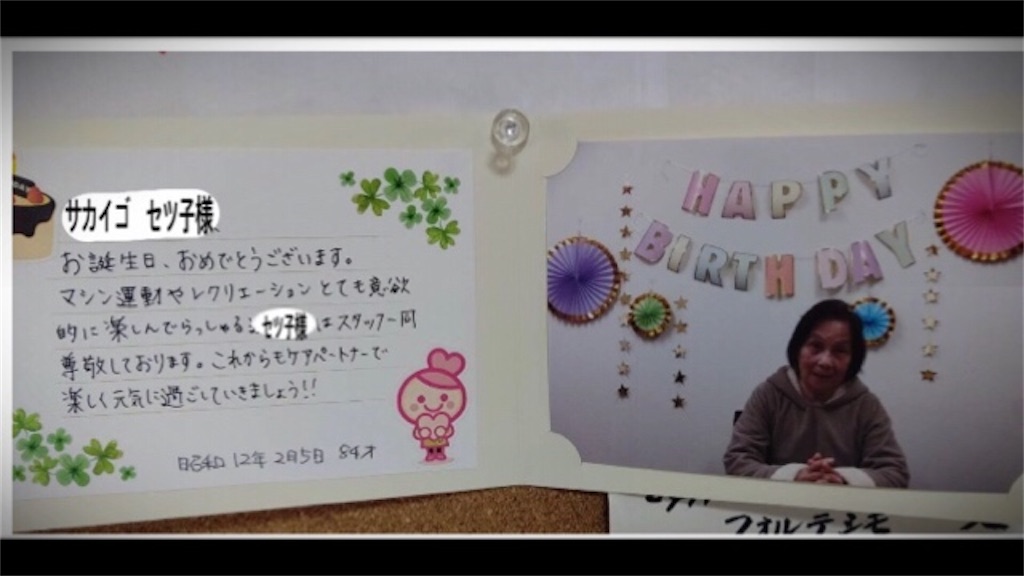 サカイゴ セツ子様
お誕生日、おめでとうございます。
マシン運動やレクリエーションとても意欲
的に楽しんでらっしゃる セツ子様 はスタッフ一同
尊敬しております。これからもケアパートナーで
楽しく元気に過ごしていきましょう!!
昭和12年2月5日 84才
HAPPY
BIRTHDAY
フォルテシモ